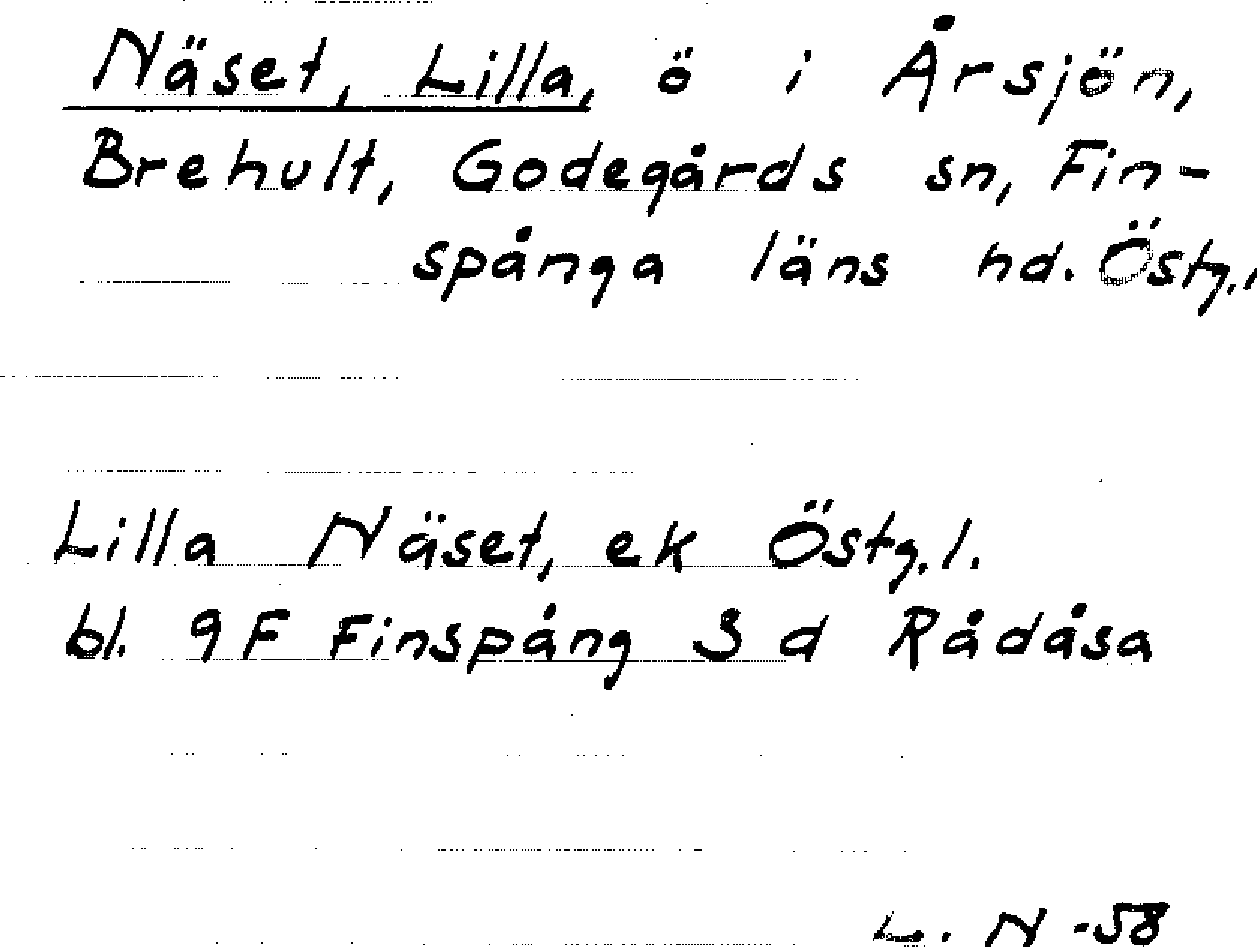 Näset, Lilla, ö i Årsjön,
Brehult, Godegårds sn, Fin-
spånga läns hd. Östg.l
Lilla Näset, ek Östg.l.
bl. 9F Finspång 3 d Rådåsa
L. N -58